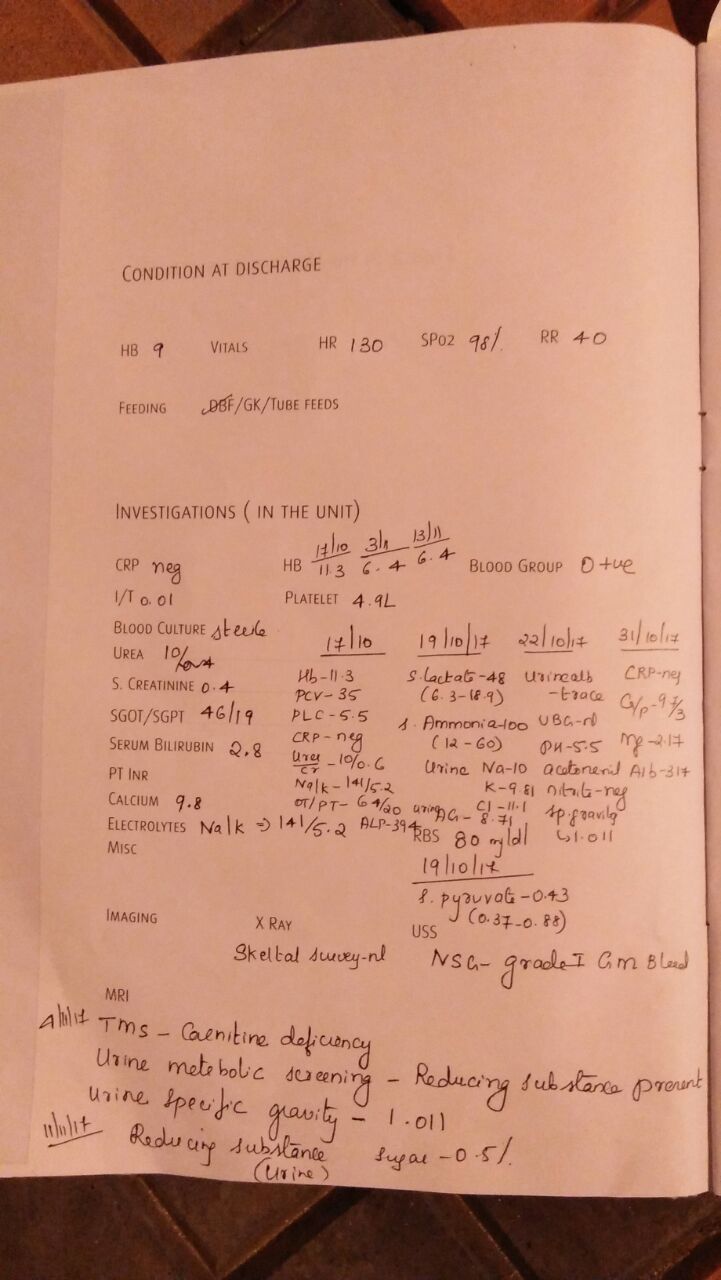 CONDITION AT DISCHARGE
HB 9 VITALS HR 130 SPO2 98% RR 40
FEEDING DBF/GK/TUBE FEEDS
INVESTIGATIONS ( IN THE UNIT)
17/10 3/11 13/11
CRP neg HB 11.3 6.4 6.4 BLOOD GROUP O +ve
I/T 0.01 PLATELET 4.9L
BLOOD CULTURE sterile
UREA 10/
S. CREATININE 0.4
SGOT/SGPT 46/19
SERUM BILIRUBIN 2.8
PT INR
CALCIUM 9.8
ELECTROLYTES Na/k => 141/5.2
MISC
17/10
Hb-11.3
PCV-35
PLC-5.5
CRP-neg
Urea/Cr-10/0.6
Na/k-141/5.2
OT/PT-64/20
ALP-394
19/10/17
S.lactate-48
(6.3-18.9)
S. Ammonia-100
(12-60)
Urine Na-10
K-9.81
Cl-11.1
urine AG-8.71
RBS 80 mg/dl
22/10/17
Urine alb
-trace
UBG-nl
PH-5.5
nitrite-neg
Sp.gravity
1.011
31/10/17
CRP-neg
Mg-2.17
Alb-317
19/10/17
S. pyruvate-0.43
(0.37-0.88)
IMAGING X RAY USS
Skeltal survey-nl NSG- grade I Gm Bleed
MRI
4/11/17 TMS - Carnitine deficiency
Urine metebolic screening - Reducing substance present
Urine specific gravity - 1.011
11/11/17 Reducing substance sugar -0.5%
(Urine)